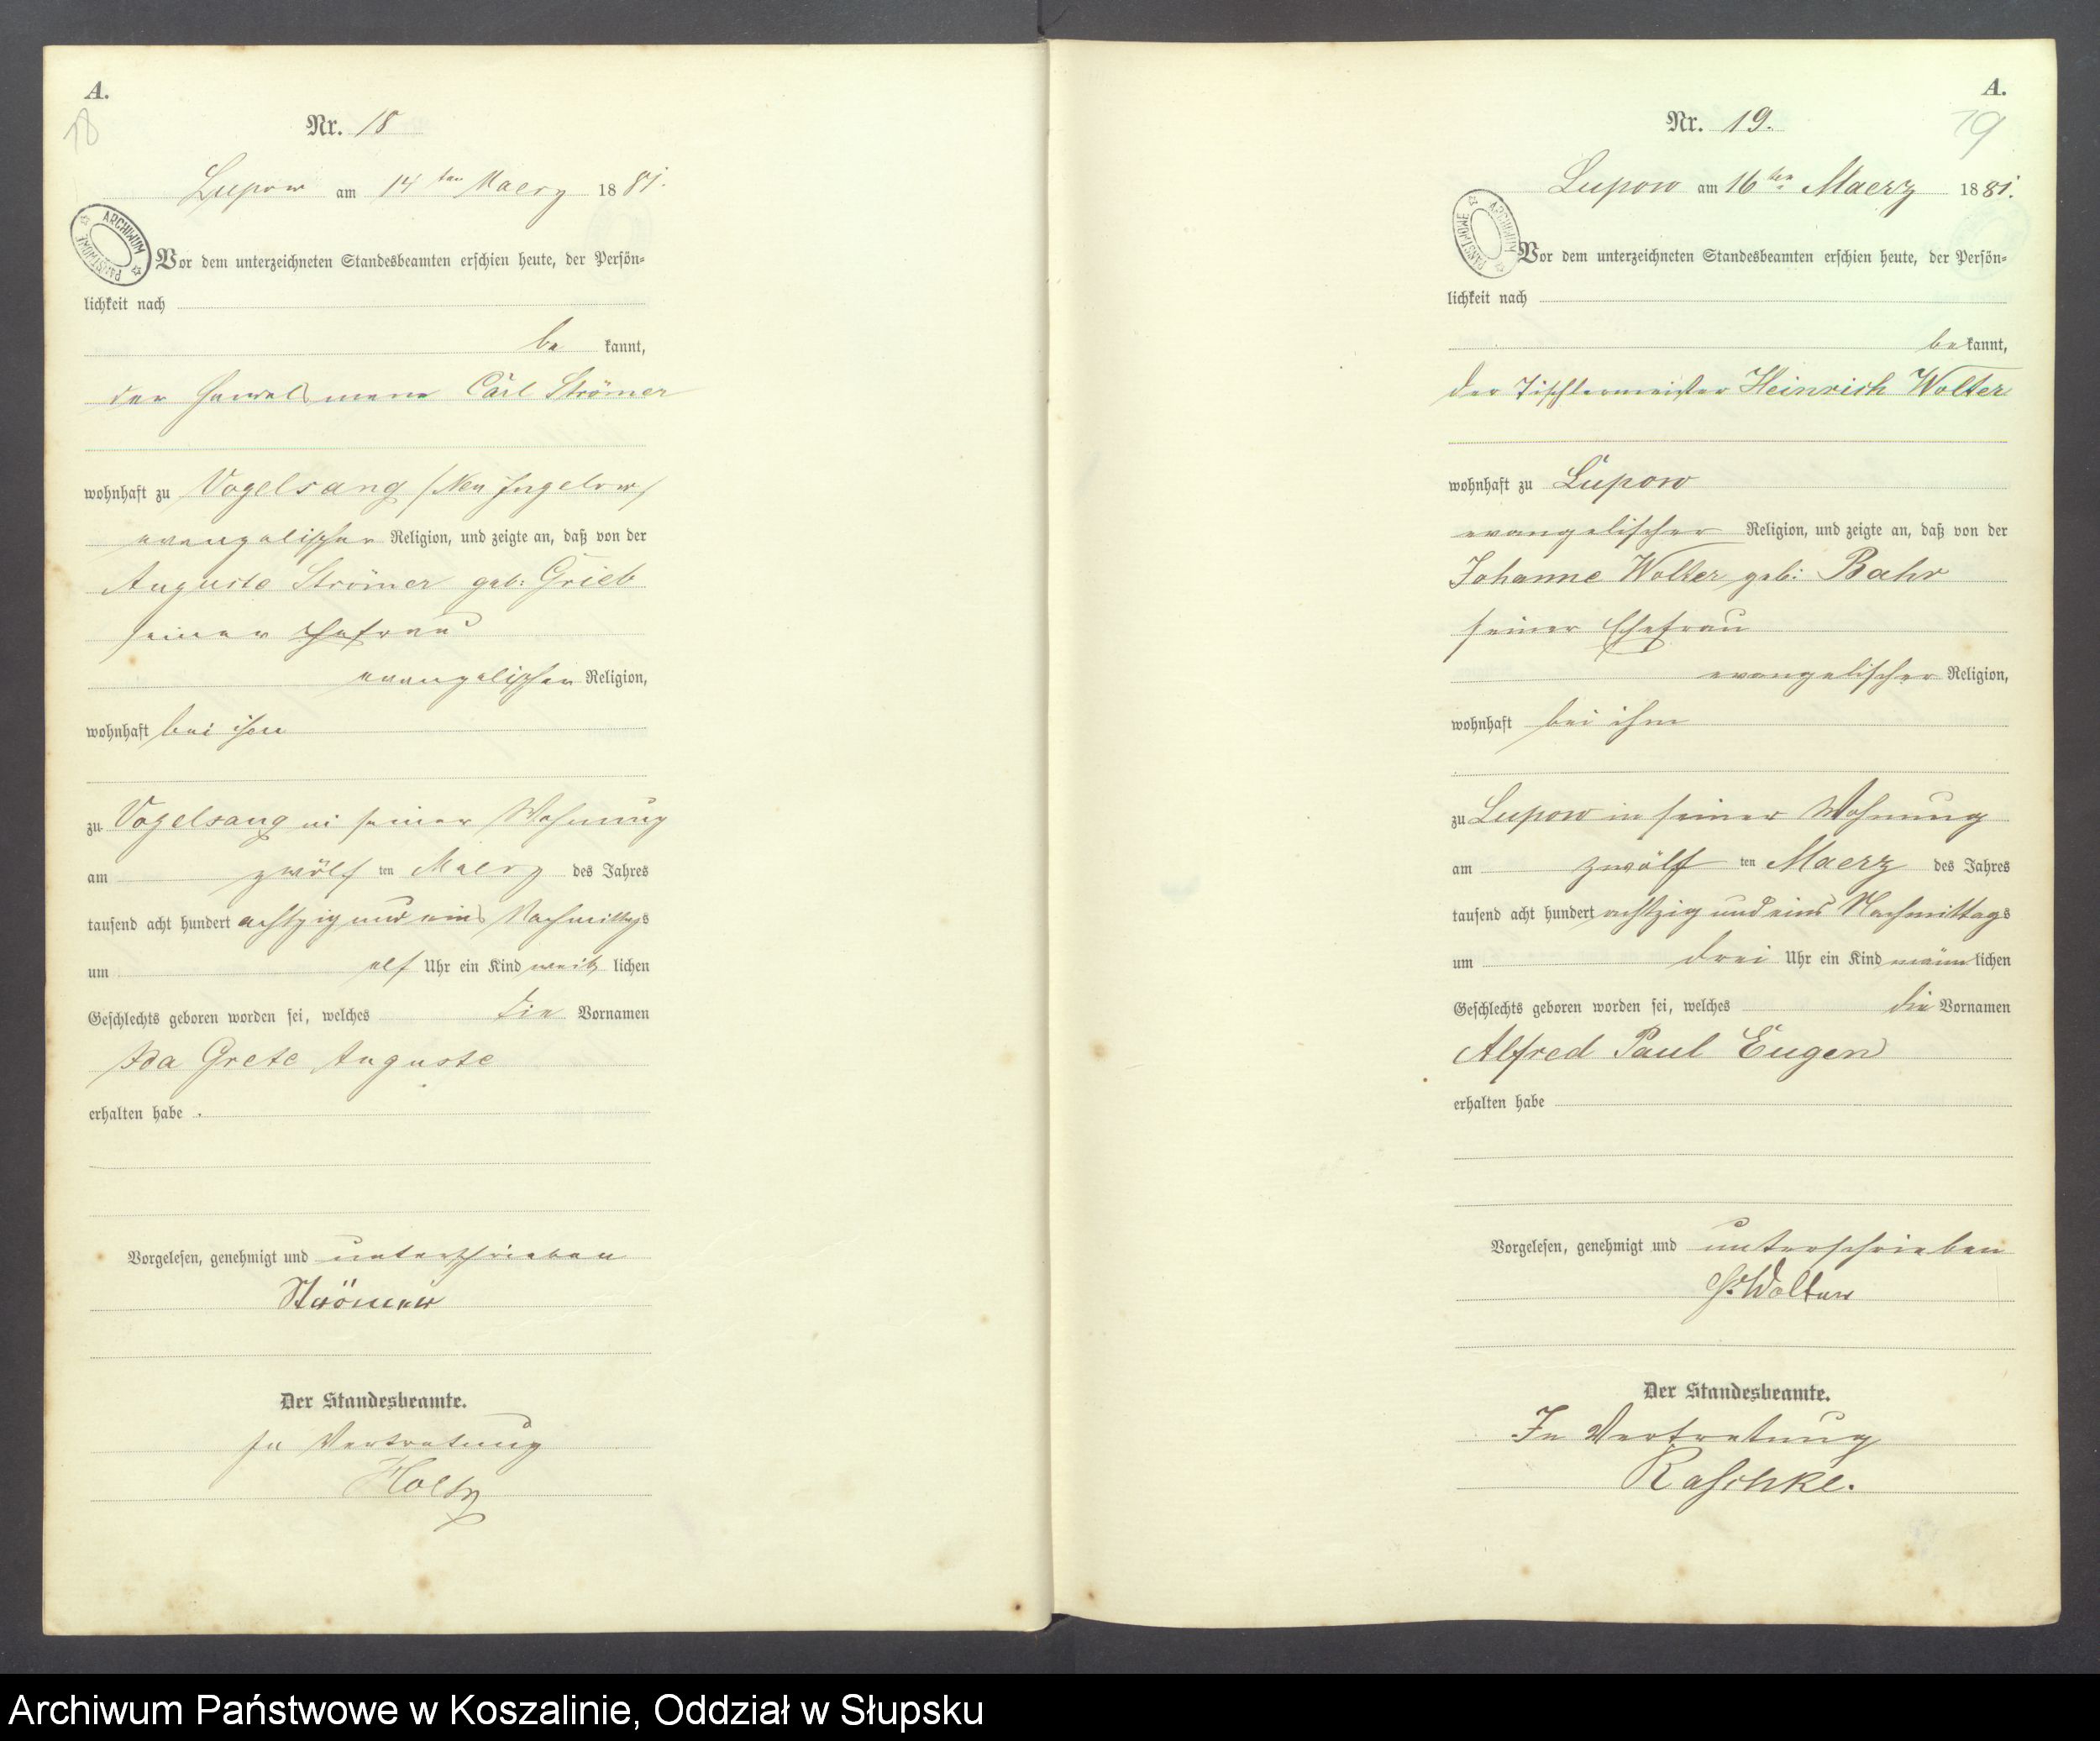 A.
18
Nr. 18
Lupow am 14ten Maerz 1881.
ARCHIWUM PAŃSTWOWE
Vor dem unterzeichneten Standesbeamten erschien heute, der Persön-
lichkeit nach
be kannt,
der Carl Strömer
wohnhaft zu Vogelsang /Neu Jugelow/
evangelischer Religion, und zeigte an, daß von der
Auguste Strömer geb: Grieb
seiner Ehefrau
evangelischer Religion,
wohnhaft bei ihm
zu Vogelsang in seiner Wohnung
am zwölf ten Maerz des Jahres
tausend acht hundert achtzig und eins Nachmittags
um elf Uhr ein Kind weib lichen
Geschlechts geboren worden sei, welches die Vornamen
Ida Grete Auguste
erhalten habe .
Vorgelesen, genehmigt und unterschrieben
Strömer
Der Standesbeamte.
In Vertretung
Holtz
A.
19
Nr. 19.
Lupow am 16ten Maerz 1881.
ARCHIWUM PAŃSTWOWE
Vor dem unterzeichneten Standesbeamten erschien heute, der Persön-
lichkeit nach
be kannt,
der Tischlermeister Heinrich Wolter
wohnhaft zu Lupow
evangelischer Religion, und zeigte an, daß von der
Johanne Wolter geb: Bahr
seiner Ehefrau
evangelischer Religion,
wohnhaft bei ihm
zu Lupow in seiner Wohnung
am zwölf ten Maerz des Jahres
tausend acht hundert achtzig und eins Nachmittags
um drei Uhr ein Kind männ lichen
Geschlechts geboren worden sei, welches die Vornamen
Alfred Paul Eugen
erhalten habe
Vorgelesen, genehmigt und unterschrieben
H. Wolter
Der Standesbeamte.
In Vertretung
Raschke.
Archiwum Państwowe w Koszalinie, Oddział w Słupsku